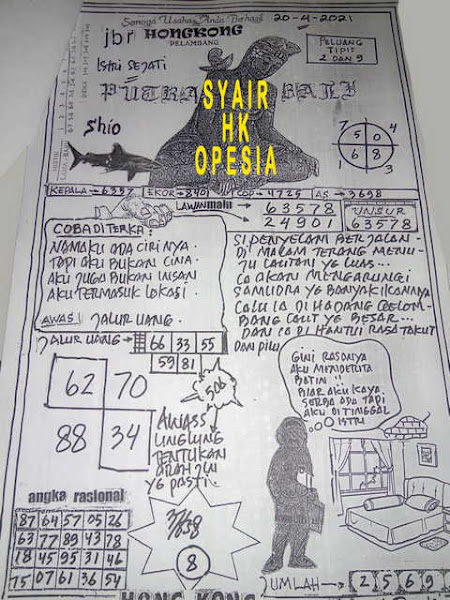 Semoga Usaha Anda Berhasil
20-4-2021
jbr HONGKONG
PELAMBANG
PELUANG
TIPIS
2 DAN 9
ISTRI SEJATI
PUTRA BALI
SYAIR
HK
OPESIA
Shio
7 5 0 4
1 6 8 3
KEPALA → 6357
EKOR → 8901
COP → 4725
AS → 3698
LAWAN main
63578
24901
UNSUR
63578
COBA DI TERKA:
NAMAKU ADA CIRINYA.
TAPI AKU BUKAN CINA.
AKU JUGA BUKAN INSAN
AKU TERMASUK LOKASI.
AWAS! JALUR UANG.
SI PENYELAM BERJALAN
DI MALAM TERANG MENU-
JU LAUTAN YG LUAS...
IA AKAN MENGARUNGI
SAMUDRA YG BANYAK IKANNYA
LALU IA DI HADANG GELOM-
BANG LAUT YG BESAR...
DAN IA DI HANTUI RASA TAKUT
DAN PILU
JALUR UANG →
66 33 55
59 81
62 70
88 34
506
AWASS
LINGLUNG
TENTUKAN
ARAH JLN
YG PASTI.
GINI RASANYA
AKU MENDERITA
BATIN !!
BIAR AKU KAYA
SERBA ADA TAPI
AKU DI TINGGAL
ISTRI
angka rasional
87 64 57 05 26
63 77 89 43 78
18 45 95 31 46
75 07 61 36 54
8
JUMLAH → 2 5 6 9
HONG KONG